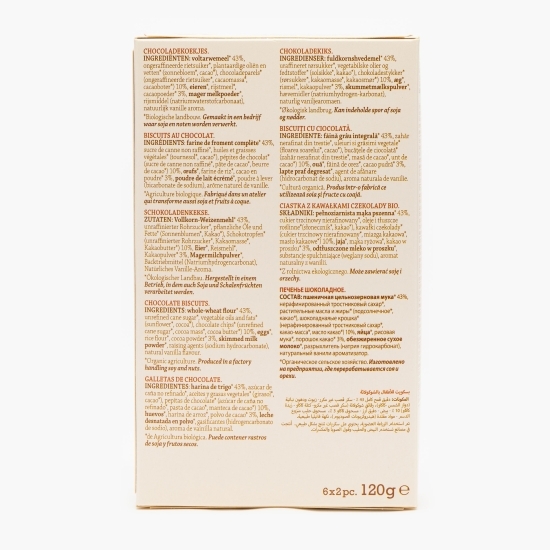 CHOCOLADEKOEKJES.
INGREDIËNTEN: voltarwemeel* 43%,
ongeraffineerde rietsuiker*, plantaardige oliën en
vetten* (zonnebloem*, cacao*), chocoladeparels*
(ongeraffineerde rietsuiker*, cacaomassa*,
cacaoboter*) 10%, eieren*, rijstmeel*,
cacaopoeder* 3%, mager melkpoeder*,
rijsmiddel (natriumwaterstofcarbonaat),
natuurlijk vanille aroma.
*Biologische landbouw. Gemaakt in een bedrijf
waar soja en noten worden verwerkt.
BISCUITS AU CHOCOLAT.
INGRÉDIENTS: farine de froment complète* 43%,
sucre de canne non raffiné*, huiles et graisses
végétales* (tournesol*, cacao*), pépites de chocolat*
(sucre de canne non raffiné*, pâte de cacao*, beurre
de cacao*) 10%, œufs*, farine de riz*, cacao en
poudre* 3%, poudre de lait écrémé*, poudre à lever
(bicarbonate de sodium), arôme naturel de vanille.
*Agriculture biologique. Fabriqué dans un atelier
qui transforme aussi soja et fruits à coque.
SCHOKOLADENKEKSE.
ZUTATEN: Vollkorn-Weizenmehl* 43%,
unraffinierter Rohrzucker*, pflanzliche Öle und
Fette* (Sonnenblumen*, Kakao*), Schokotropfen*
(unraffinierter Rohrzucker*, Kakaomasse*,
Kakaobutter*) 10%, Eier*, Reismehl*,
Kakaopulver* 3%, Magermilchpulver*,
Backtriebmittel (Natriumhydrogencarbonat),
Natürliches Vanille-Aroma.
*Ökologischer Landbau. Hergestellt in einem
Betrieb, in dem auch Soja und Schalenfrüchten
verarbeitet werden.
CHOCOLATE BISCUITS.
INGREDIENTS: whole-wheat flour* 43%,
unrefined cane sugar*, vegetable oils and fats*
(sunflower*, cocoa*), chocolate chips* (unrefined
cane sugar*, cocoa mass*, cocoa butter*) 10%, eggs*,
rice flour*, cocoa powder* 3%, skimmed milk
powder*, raising agent (sodium hydrocarbonate),
natural vanilla flavour.
*Organic agriculture. Produced in a factory
handling soy and nuts.
GALLETAS DE CHOCOLATE.
INGREDIENTES: harina de trigo* 43%, azúcar de
caña no refinado*, aceites y grasas vegetales* (girasol*,
cacao*), pepitas de chocolate* (azúcar de caña no
refinado*, pasta de cacao*, manteca de cacao*) 10%,
huevos*, harina de arroz*, polvo de cacao* 3%, leche
desnatada en polvo*, gasificantes (hidrogenocarbonato
de sodio), aroma de vainilla natural.
*de Agricultura biológica. Puede contener rastros
de soja y frutos secos.
CHOKOLADEKIKS.
INGREDIENSER: fuldkornshvedemel* 43%,
uraffineret rørsukker*, vegetabilske olier og
fedtstoffer* (solsikke*, kakao*), chokoladestykker*
(rørsukker*, kakaomasse*, kakaosmør*) 10%, æg*,
rismel*, kakaopulver* 3%, skummetmælkspulver*,
hævemidler (natriumhydrogen-karbonat),
naturlig vaniljearomaen.
*Økologisk landbrug. Kan indeholde spor af soja
og nødder.
BISCUIȚI CU CIOCOLATĂ.
INGREDIENTE: făină grâu integrală* 43%, zahăr
nerafinat din trestie*, uleiuri și grăsimi vegetale*
(floarea soarelui*, cacao*), bucățele de ciocolată*
(zahăr nerafinat din trestie*, masă de cacao*, unt de
cacao*) 10%, ouă*, făină de orez*, cacao pudră* 3%,
lapte praf degresat*, agent de afânare
(hidrocarbonat de sodiu), aromă naturală de vanilie.
*Cultură organică. Produs într-o fabrică ce
utilizează soia și fructe cu coajă.
CIASTKA Z KAWAŁKAMI CZEKOLADY BIO.
SKŁADNIKI: pełnoziarnista mąka pszenna* 43%,
cukier trzcinowy nierafinowany*, oleje i tłuszcze
roślinne* (słonecznik*, kakao*), kawałki czekolady*
(cukier trzcinowy nierafinowany*, miazga kakaowa*,
masło kakaowe*) 10%, jaja*, mąka ryżowa*, kakao w
proszku* 3%, odtłuszczone mleko w proszku*,
substancje spulchniające (węglany sodu), aromat
naturalny z wanilii.
*Z rolnictwa ekologicznego. Może zawierać soję i
orzechy.
ПЕЧЕНЬЕ ШОКОЛАДНОЕ.
СОСТАВ: пшеничная цельнозерновая мука* 43%,
нерафинированный тростниковый сахар*,
растительные масла и жиры* (подсолнечное*,
какао*), шоколадные крошки*
(нерафинированный тростниковый сахар*,
какао-масса*, масло какао*) 10%, яйца*, рисовая
мука*, порошок какао* 3%, обезжиренное сухое
молоко*, разрыхлитель (натрия гидрокарбонат),
натуральный ванили ароматизатор.
*Органическое сельское хозяйство. Изготовлено
на предприятии, где перерабатывается соя и
орехи.
بسكويت للأطفال بالشوكولاتة
6x2pc. 120g e